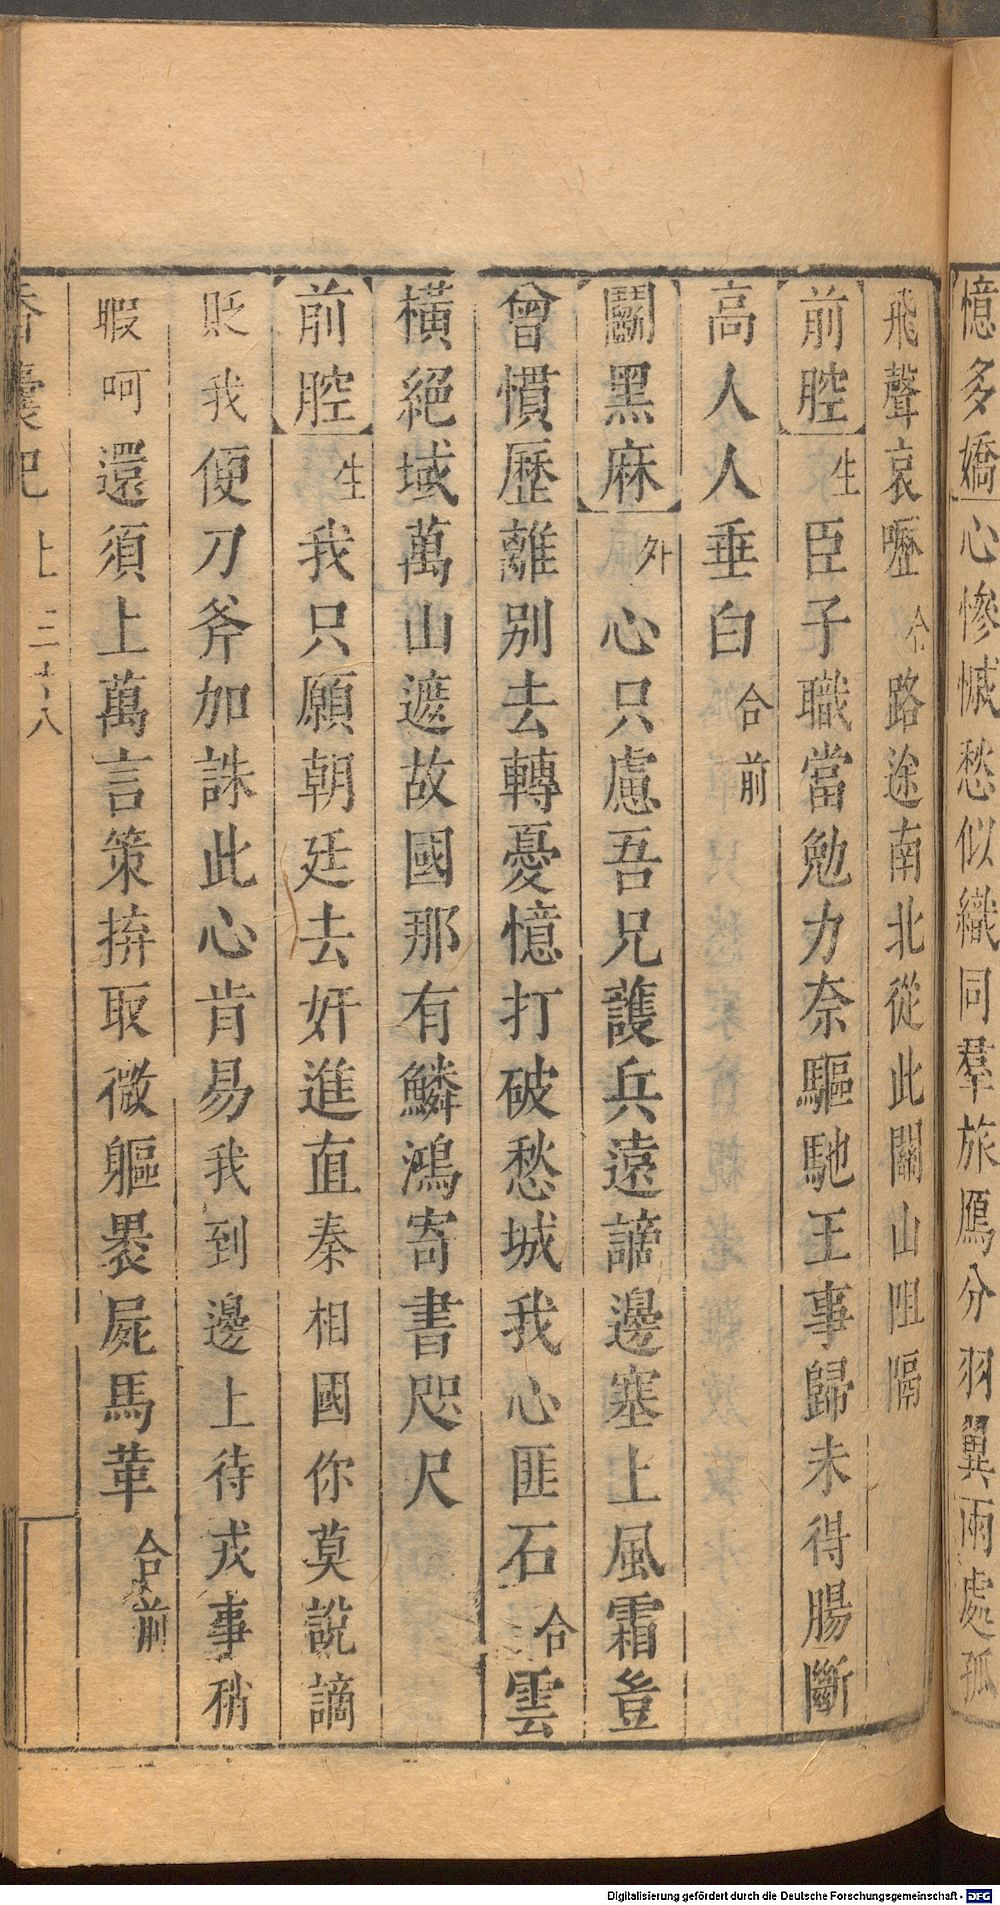 憶多嬌心慘慽愁似織同羣旅鴈分羽翼兩處孤
飛聲哀嚦合路途南北從此關山阻隔
前腔生臣子職當勉力奈驅馳王事歸未得腸斷
高人人垂白合前
鬬黑麻外心只慮吾兄護兵遠謫邊塞上風霜豈
曾慣歷離別去轉憂憶打破愁城我心匪石合雲
橫絕域萬山遮故國那有鱗鴻寄書咫尺
前腔生我只願朝廷去奸進直秦相國你莫說謫
貶我便刀斧加誅此心肯易我到邊上待戎事稍
暇呵還須上萬言策捹取微軀裹屍馬革合前
香囊記 上 三十八
Digitalisierung gefördert durch die Deutsche Forschungsgemeinschaft - DFG